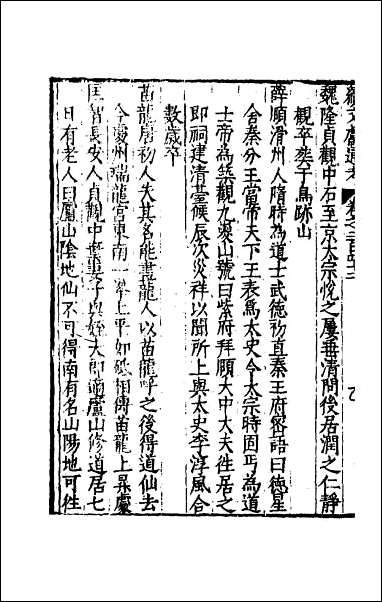 續文獻通考
魏隆貞觀中召至京太宗悅之屢垂清問後居潤之仁靜
觀卒葬于馬跡山
薛頤滑州人隋時為道士武德初直秦王府密語曰德星
舍秦分王當帝天下王表為太史令太宗時固丐為道
士帝為築觀九嵕山號曰紫府拜頤大中大夫往居之
即祠建清臺候辰次災祥以聞所上與太史李淳風合
數歲卒
苗龍唐初人失其名能畫龍人以苗龍呼之後得道仙去
今夔州瑞龍宮東南一峯上平如砥相傳苗龍上昇處
匡智長安人貞觀中棄妻子與姪大郎適廬山修道居七
日有老人曰廬山陰地仙不可得南有名山陽地可往